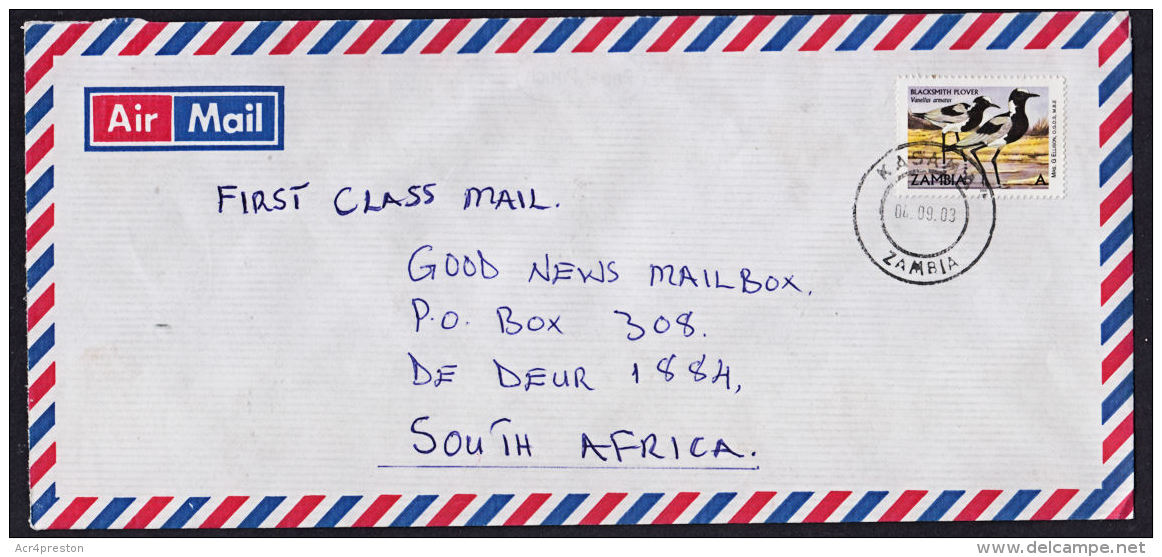 Air Mail
BLACKSMITH PLOVER
Vanellus armatus
MRS. G ELLISON, O.G.D.S, M.B.E
ZAMBIA A
04.09.03
ZAMBIA
FIRST CLASS MAIL.
GOOD NEWS MAILBOX.
P.O. BOX 308.
DE DEUR 1884,
SOUTH AFRICA.
Acr4preston
delcampe.net